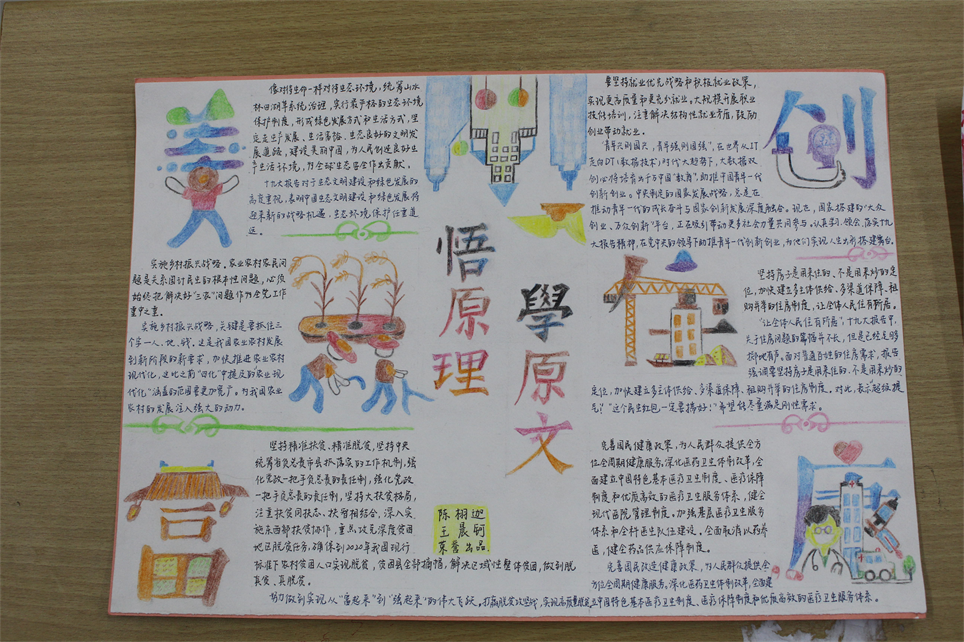 美
像对待生命一样对待生态环境,统筹山水
林田湖草系统治理,实行最严格的生态环境
保护制度,形成绿色发展方式和生活方式,坚
定走生产发展、生活富裕、生态良好的文明发
展道路,建设美丽中国,为人民创造良好生
产生活环境,为全球生态安全作出贡献。
十九大报告对于生态文明建设和绿色发展的
高度重视,表明中国生态文明建设和绿色发展将
迎来新的战略机遇,生态环境保护任重道
远。
实施乡村振兴战略。农业农村农民问
题是关系国计民生的根本性问题,必须
始终把解决好"三农"问题作为全党工作
重中之重。
实施乡村振兴战略,关键是要抓住三
个字—人、地、钱,这是我国农业农村发展
到新阶段的新要求,加快推进农业农村
现代化,这比之前"四化"中提及的农业现
代化"涵盖的范围要更加宽广。为我国农业
农村的发展注入伟大的动力。
富
坚持精准扶贫、精准脱贫,坚持中央
统筹省负总责市县抓落实的工作机制,强
化党政一把手负总责的责任制,强化党政
一把手负总责的责任制,坚持大扶贫格局,
注重扶贫同扶志、扶智相结合,深入实
施东西部扶贫协作,重点攻克深度贫困
地区脱贫任务,确保到2020年我国现行
标准下农村贫困人口实现脱贫,贫困县全部摘帽,解决区域性整体贫困,做到脱
真贫、真脱贫。
努力做到实现从"富起来"到"强起来"的伟大飞跃。打赢脱贫攻坚战,实现高质量脱贫
悟原理
學原文
陈栩迦
王晨钶
荣誉出品.
要坚持就业优先战略和积极就业政策,
实现更高质量和更充分就业。大规模开展职业
技能培训,注重解决结构性就业矛盾,鼓励
创业带动就业。
"青年兴则国兴,青年强则国强",在世界从IT
走向DT(数据技术)时代大趋势下,大数据双
创必将培育出千万中国"教育",助推中国青年一代
创新创业。中央制定的国家发展战略,总是在
推动青年一代的成长奋斗与国家创新发展深度融合。现在,国家搭建的"大众
创业、万众创新"平台,正在吸引带动更多社会力量共同参与。认真学习领会、落实十九
大报告精神,在党中央的领导下助推青年一代创新创业,为他们实现人生出彩搭建舞台。
创
住
坚持房子是用来住的、不是用来炒的定
位,加快建立多主体供给、多渠道保障、租
购并举的住房制度,让全体人民住有所居。
"让全体人民住有所居",十九大报告中,
关于住房问题的篇幅并不长,但是已经足够
掷地有声。面对普通百姓的住房需求,报告
强调要坚持房子是用来住的、不是用来炒的
定位,加快建立多主体供给、多渠道保障、租购并举的住房制度。对此,表示超级提
气!"这个民生红包一定要搞好!"希望能尽量满足刚性需求。
完善国民健康政策,为人民群众提供全方
位全周期健康服务,深化医药卫生体制改革,全
面建立中国特色基本医疗卫生制度、医疗保障
制度和优质高效的医疗卫生服务体系,健全
现代医院管理制度。加强基层医疗卫生服务
体系和全科医生队伍建设。全面取消以药养
医,健全药品供应保障制度。
完善国民改造健康政策,为人民群众提供全
方位全周期健康服务。深化医药卫生体制改革,全面建
立中国特色基本医疗卫生制度、医疗保障制度和优质高效的医疗卫生服务体系。
康